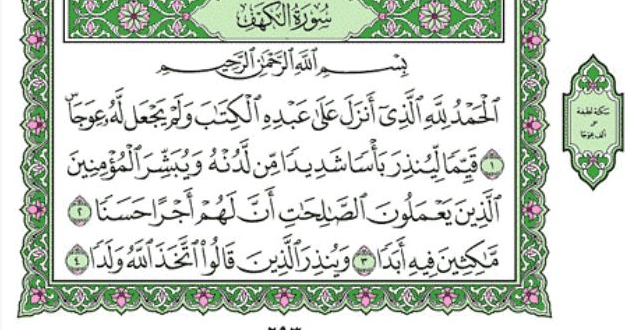 سُورَةُ الْكَهْفِ
بِسْمِ اللَّهِ الرَّحْمَٰنِ الرَّحِيمِ
الْحَمْدُ لِلَّهِ الَّذِي أَنزَلَ عَلَىٰ عَبْدِهِ الْكِتَابَ وَلَمْ يَجْعَل لَّهُ عِوَجًا
١ قَيِّمًا لِّيُنذِرَ بَأْسًا شَدِيدًا مِّن لَّدُنْهُ وَيُبَشِّرَ الْمُؤْمِنِينَ
الَّذِينَ يَعْمَلُونَ الصَّالِحَاتِ أَنَّ لَهُمْ أَجْرًا حَسَنًا ٢
مَّاكِثِينَ فِيهِ أَبَدًا ٣ وَيُنذِرَ الَّذِينَ قَالُوا اتَّخَذَ اللَّهُ وَلَدًا ٤
سكتة لطيفة
على
ألف عوجا
٢٩٣